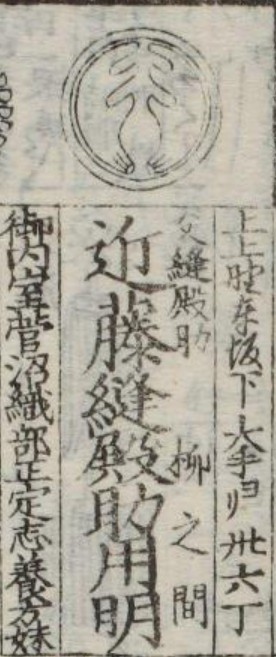 上上野車坂下大手ヨリ卅六丁
父縫殿助 柳之間
近藤縫殿助用明
御内室菅沼織部正定志養方妹